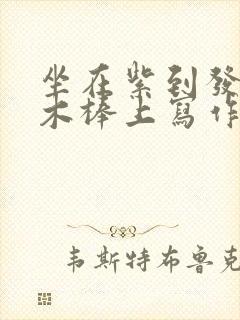 坐在紫到發
木棒上寫作
韦斯特布鲁克